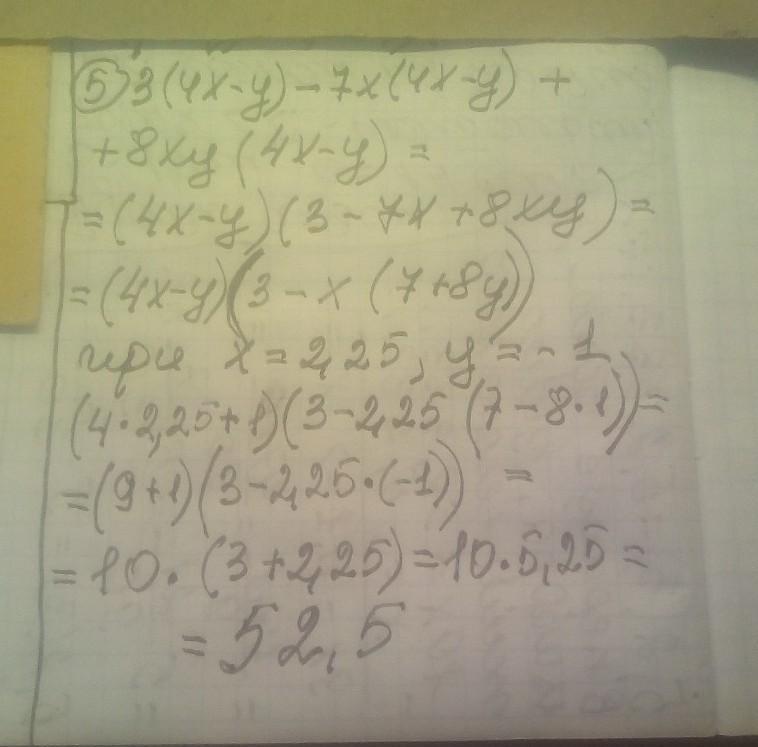 ⑤ 3(4x-y)-7x(4x-y)+
+8xy(4x-y)=
=(4x-y)(3-7x+8xy)=
=(4x-y)(3-x(7+8y))
при x=2,25, y=-1
(4·2,25+1)(3-2,25(7-8·1))=
=(9+1)(3-2,25·(-1))=
=10·(3+2,25)=10·5,25=
=52,5